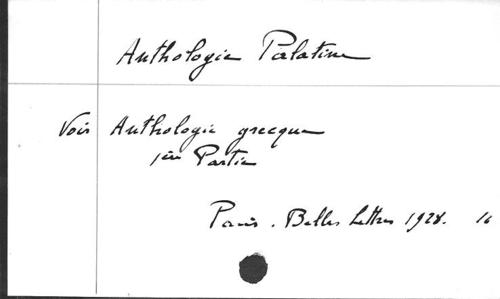 Anthologie Palatine
Voir Anthologie grecque
1ère Partie
Paris. Belles Lettres 1928. 16